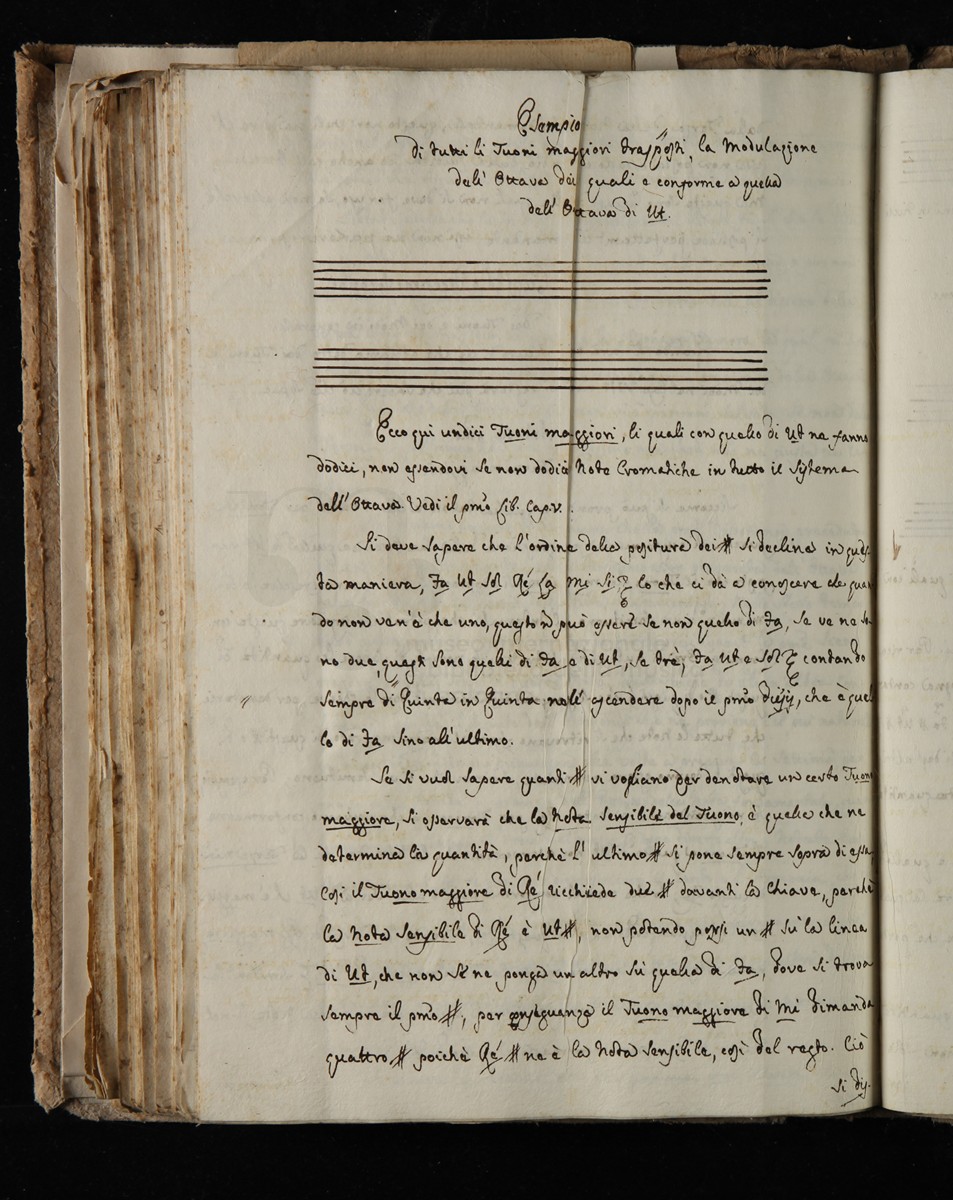 Esempio
di tutti li Tuoni maggiori trasposti, la Modulazione
dell' Ottava dei quali e conforme a quella
dell' Ottava di Ut.
Ecco qui undici Tuoni maggiori, li quali con quello di Ut ne fanno
dodici, non essendovi se non dodici Note Cromatiche in tutto il sistema
dell' Ottava. Vedi il pmo Lib. Cap. V.
Si deve sapere che l'ordine delle positure dei # si declina in ques-
ta maniera, Fa Ut Sol Ré La Mi Si lo che ci dà a conoscere che quan
do non ven'è che uno, questo n̄ può essere se non quello di Fa, se ve ne so
no due questi sono quelli di Fa e di Ut, se trè, Fa Ut e Sol contando
sempre di Quinta in Quinta nell' ascendere dopo il pmo diesis, che è quel
lo di Fa sino all'ultimo.
Se si vuol sapere quanti # vi vogliano per denotare un certo Tuono
maggiore, si osservarà che la Nota sensibile del Tuono, è quella che ne
determina la quantità, perchè l'ultimo # si pone sempre sopra di essa,
Così il Tuono maggiore di Ré ricchiede due # davanti la Chiave, perchè
la Nota Sensibile di Ré è Ut #, non potendo porsi un # sù la linea
di Ut, che non se ne ponga un altro sù quella di Fa, dove si trova
sempre il pmo #, per conseguenza il Tuono maggiore di Mi dimanda
quattro # poichè Ré # ne è la Nota sensibile, così del resto. Ciò
si dis-